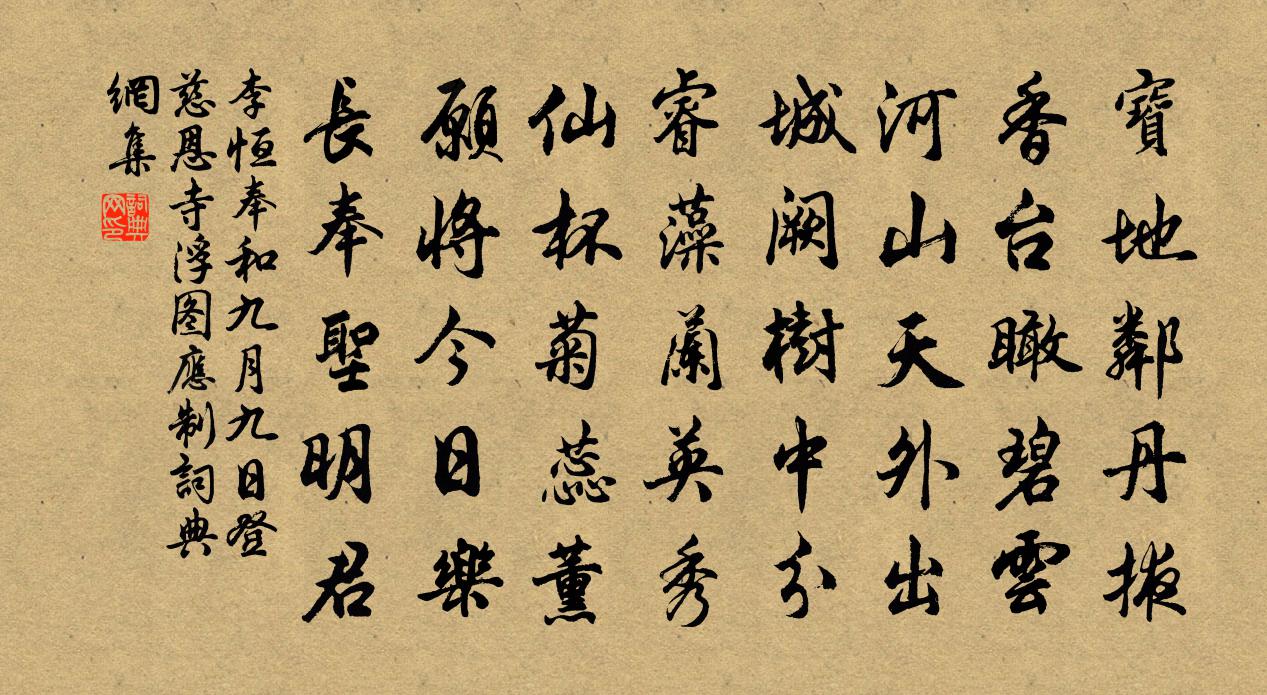 寶地鄰丹掖
香台瞰碧雲
河山天外出
城闕樹中分
睿藻蘭英秀
仙杯菊蕊薰
願將今日樂
長奉聖明君
李恒奉和九月九日登
慈恩寺浮图應制詞典
網集
詞典网印